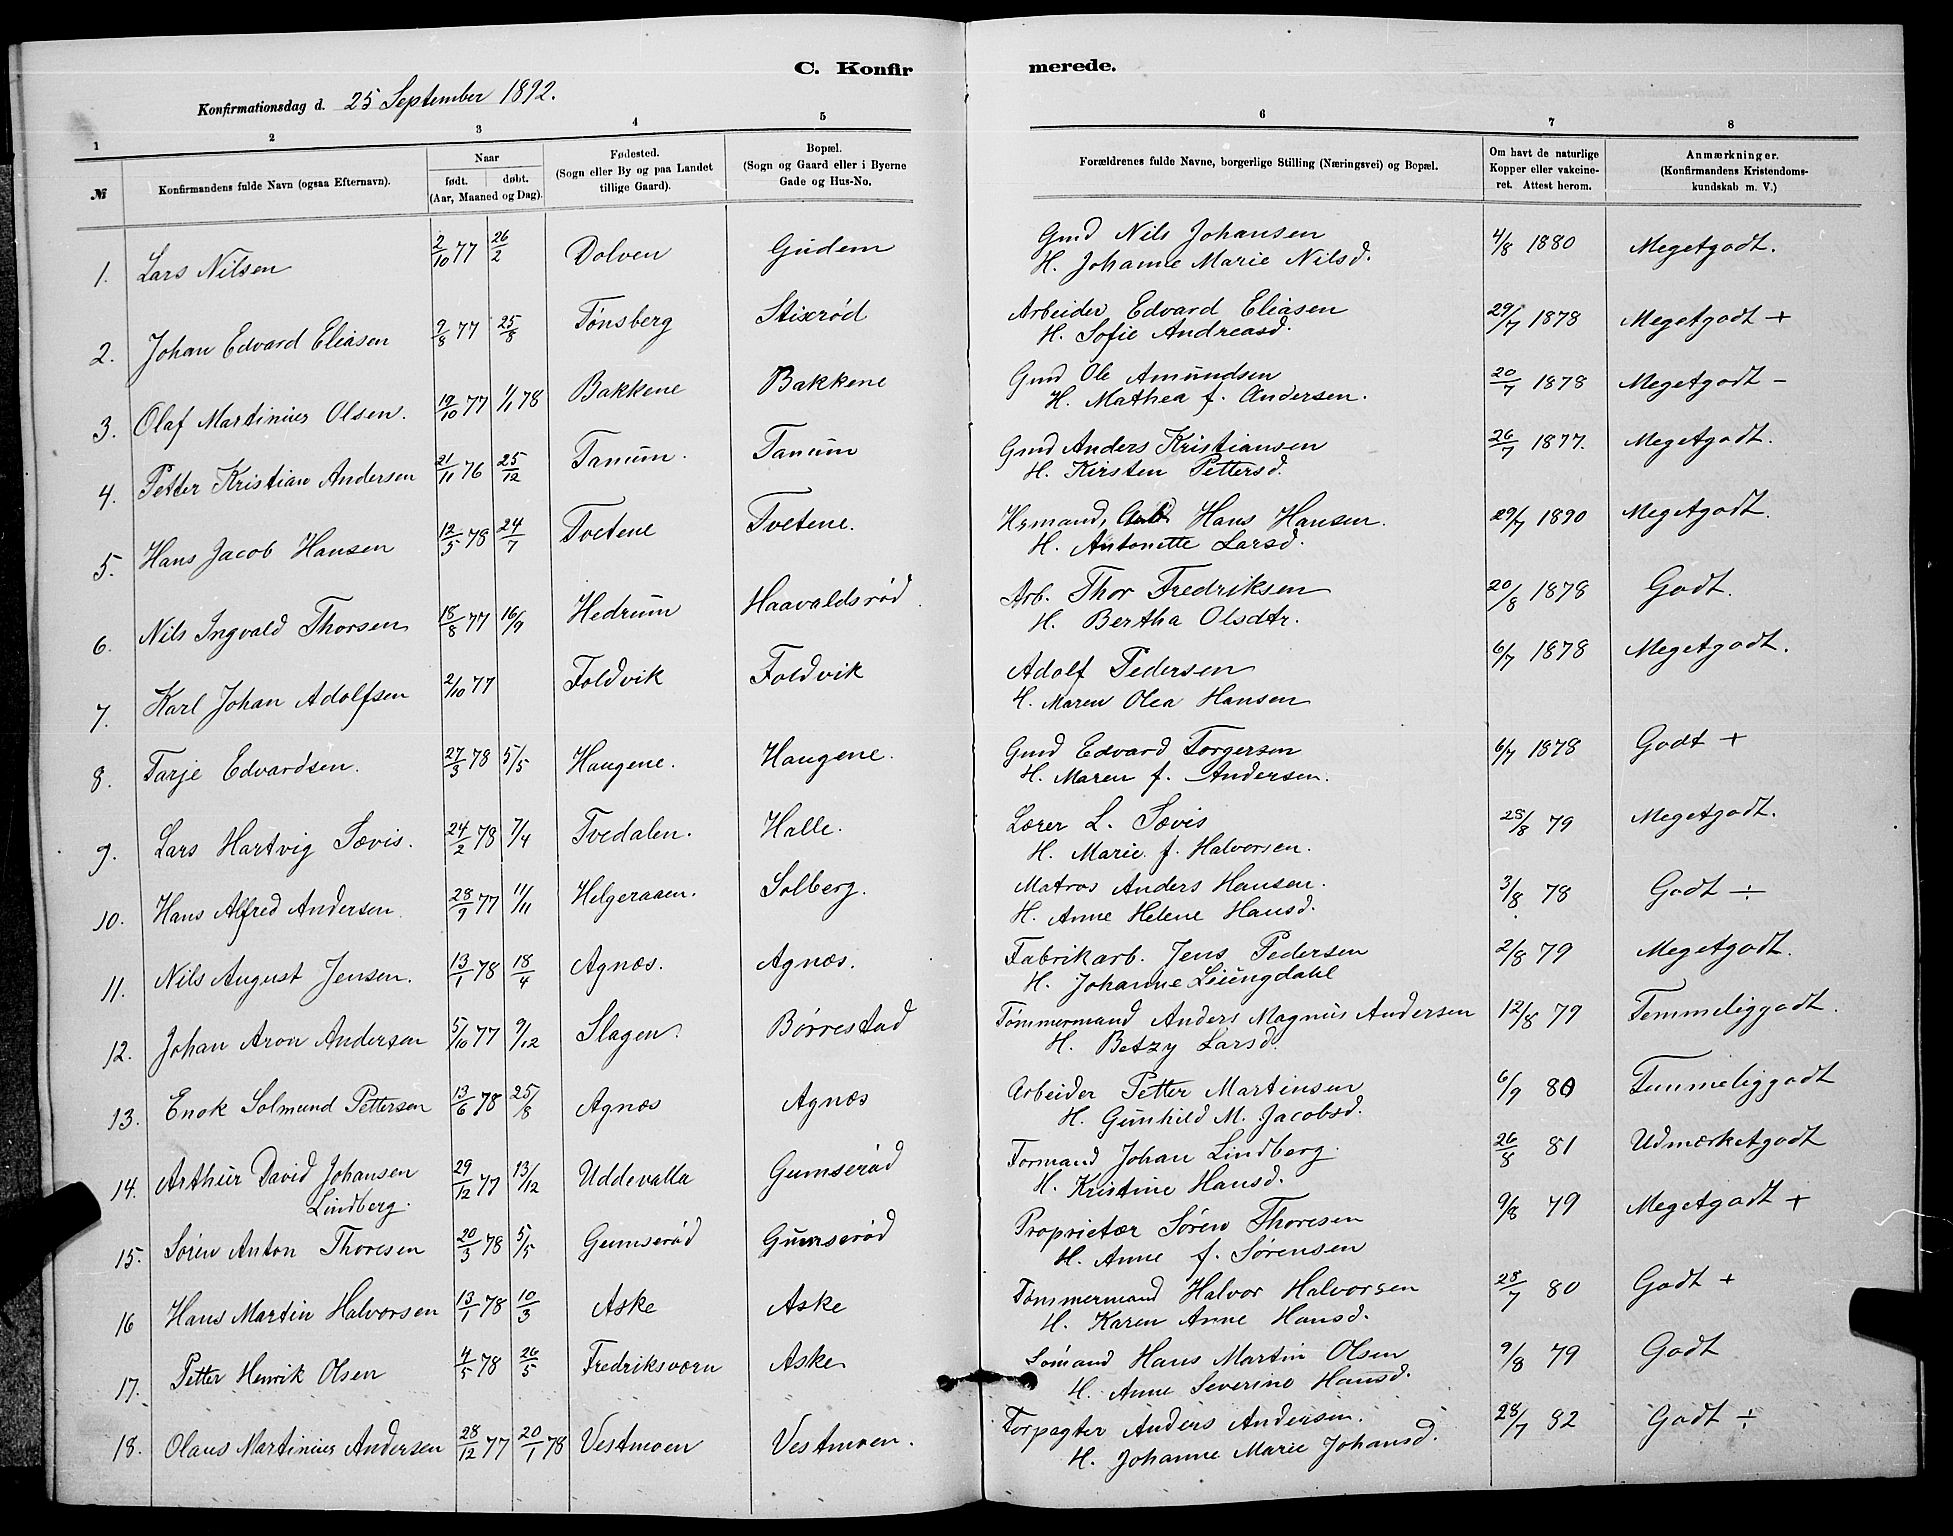 C. Konfirmerede.
Konfirmationsdag d. 25 September 1892.
1 2 3 4 5 6 7 8
№ Konfirmandens fulde Navn (ogsaa Efternavn). Naar født. døbt. (Aar, Maaned og Dag). Fødested. (Sogn eller By og paa Landet tillige Gaard). Bopæl. (Sogn og Gaard eller i Byerne Gade og Hus-No. Forældrenes fulde Navne, borgerlige Stilling (Næringsvei) og Bopæl. Om havt de naturlige Kopper eller vakcineret. Attest herom. Anmærkninger. (Konfirmandens Kristendomskundskab m. V.)
1. Lars Nilsen 2/10 77 26/2 Dolven Gudem Gmd Nils Johansen 4/8 1880 Megetgodt.
H. Johanne Marie Nilsd.
2. Johan Edvard Eliasen 2/8 77 25/8 Tønsberg Stixrød Arbeider Edvard Eliasen 29/7 1878 Megetgodt +
H. Sofie Andreasd.
3. Olaf Martinius Olsen. 19/10 77 1/1 78 Bakkene Bakkene Gmd Ole Amundsen 20/7 1878 Megetgodt –
H. Mathea f. Andersen.
4. Petter Kristian Andersen 21/11 76 25/12 Tanum. Tanum Gmd Anders Kristiansen 26/7 1877. Megetgodt.
H. Kirsten Pettersd.
5. Hans Jacob Hansen 12/5 78 24/7 Tvetene Tvetene. Hsmand, Arb. Hans Hansen. 29/7 1890 Megetgodt.
H. Antonette Larsd.
6. Nils Ingvald Thorsen 18/8 77 16/9 Hedrum Haavaldsrød. Arb. Thor Fredriksen 20/8 1878 Godt.
H. Bertha Olsdtr.
7. Karl Johan Adolfsen 2/10 77 Foldvik Foldvik Adolf Pedersen 6/7 1878 Megetgodt.
H. Maren Olea Hansen
8. Tarje Edvardsen. 27/3 78 5/5 Haugene. Haugene. Gmd Edvard Torgersen 6/7 1878 Godt +
H. Maren f. Andersen.
9. Lars Hartvig Sævis. 24/2 78 7/4 Tvedalen. Halle. Lærer L. Sævis 28/8 79 Megetgodt.
H. Marie f. Halvorsen.
10. Hans Alfred Andersen. 28/9 77 11/11 Helgeraaen. Solberg. Matros Anders Hansen. 3/8 78 Godt ÷
H. Anne Helene Hansd.
11. Nils August Jensen. 13/1 78 18/4 Agnæs. Agnæs. Fabrikarb. Jens Pedersen 2/8 79 Megetgodt.
H. Johanne Leiungdahl
12. Johan Aron Andersen 5/10 77 9/12 Slagen. Børrestad Tømmermand Anders Magnus Andersen 12/8 79 Temmeliggodt.
H. Betzy Larsd.
13. Enok Solmund Pettersen 13/6 78 25/8 Agnæs Agnæs Arbeider Petter Martinsen 6/9 80 Temmeliggodt
H. Gunhild M. Jacobsd.
14. Arthur David Johansen 29/12 77 13/12 Uddevalla Gumserød Formand Johan Lindberg. 26/8 81 Udmærketgodt
Lindberg. H. Kristine Hansd.
15. Søren Anton Thoresen 20/3 78 5/5 Gumserød Gumserød Proprietær Søren Thoresen 9/8 79 Megetgodt +
H. Anne f. Sørensen
16 Hans Martin Halvorsen 13/1 78 10/3 Aske Aske Tømmermand Halvor Halvorsen 28/7 80 Godt +
H. Karen Anne Hansd.
17. Petter Henrik Olsen 4/5 78 26/5 Fredriksværn Aske Sømand Hans Martin Olsen 9/8 79 Godt
H. Anne Severine Hansd.
18. Olaus Martinius Andersen 28/12 77 20/1 78 Vestmoen Vestmoen. Forpagter Anders Andersen. 28/7 82 Godt ÷
H. Johanne Marie Johansd.